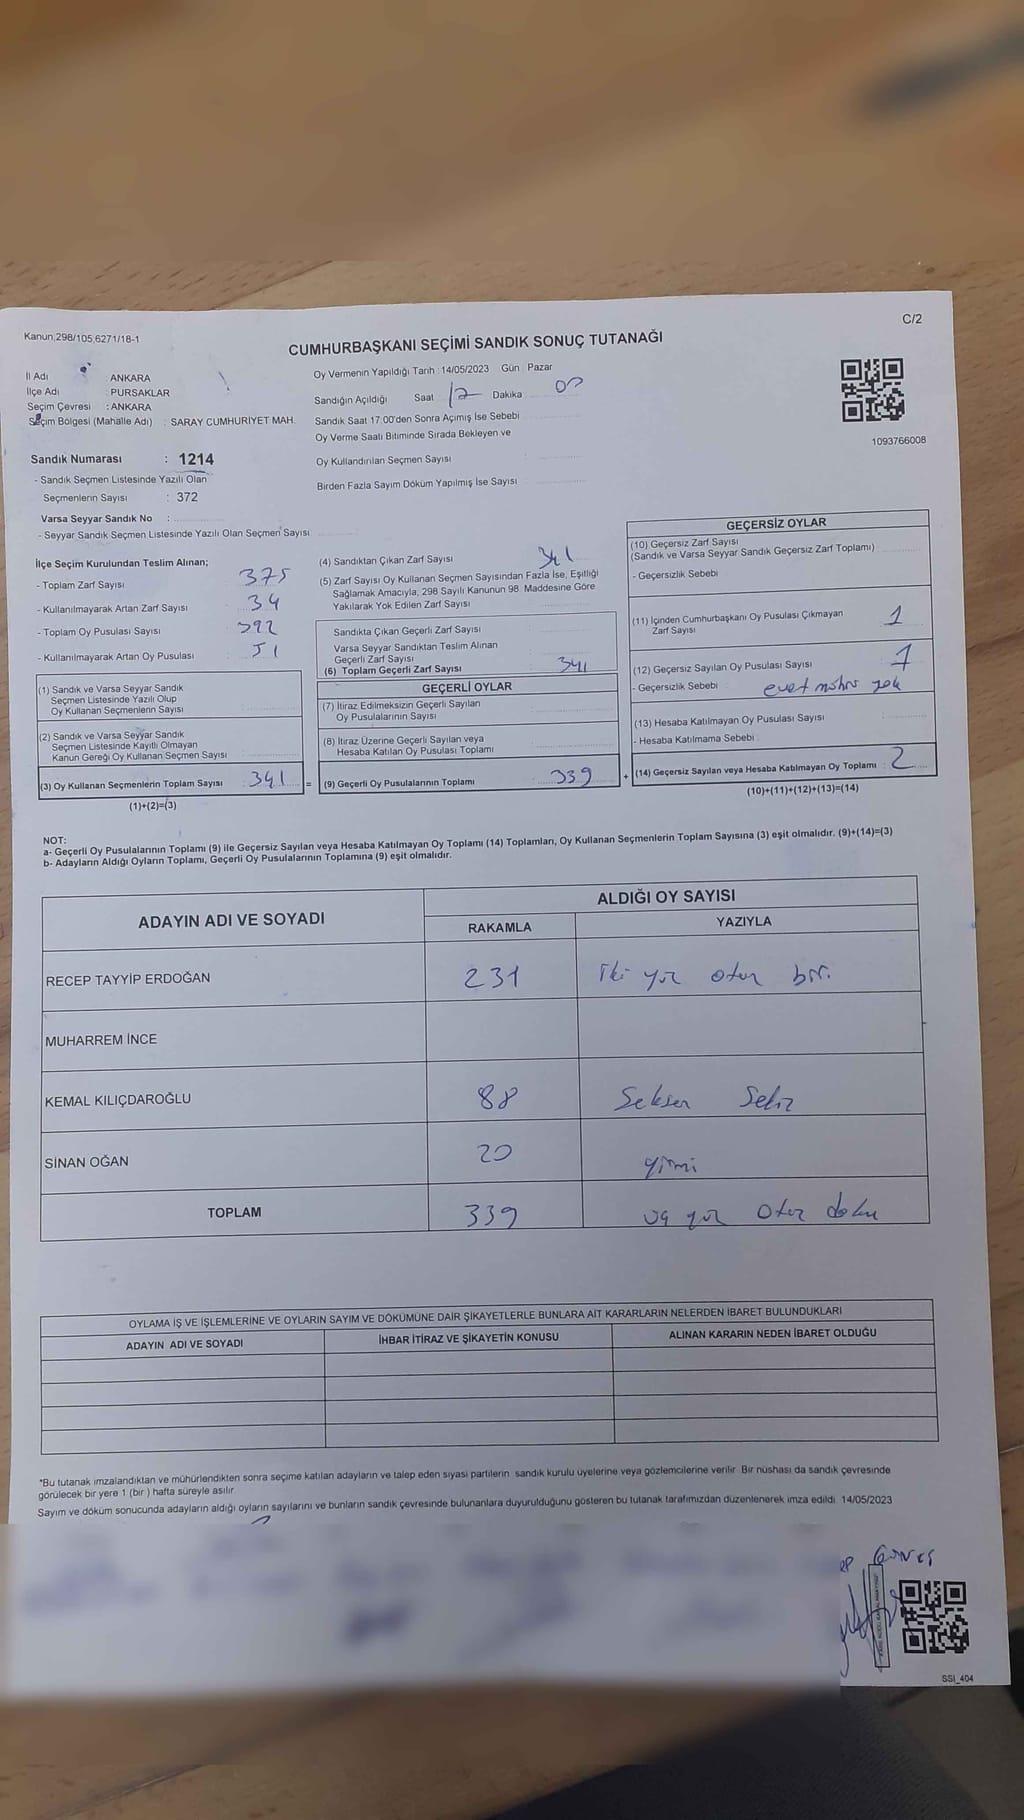 Kanun,298/105,6271/18-1
C/2
CUMHURBAŞKANI SEÇİMİ SANDIK SONUÇ TUTANAĞI
İl Adı : ANKARA
İlçe Adı : PURSAKLAR
Seçim Çevresi : ANKARA
Seçim Bölgesi (Mahalle Adı) : SARAY CUMHURİYET MAH.
Sandık Numarası : 1214
- Sandık Seçmen Listesinde Yazılı Olan
Seçmenlerin Sayısı : 372
Varsa Seyyar Sandık No :
- Seyyar Sandık Seçmen Listesinde Yazılı Olan Seçmen Sayısı
Oy Vermenin Yapıldığı Tarih :14/05/2023 Gün : Pazar
Sandığın Açıldığı Saat 17 Dakika 00
Sandık Saat 17:00'den Sonra Açımış İse Sebebi
Oy Verme Saati Bitiminde Sırada Bekleyen ve
Oy Kullandırılan Seçmen Sayısı :
Birden Fazla Sayım Döküm Yapılmış İse Sayısı
1093766008
İlçe Seçim Kurulundan Teslim Alınan;
- Toplam Zarf Sayısı 375
- Kullanılmayarak Artan Zarf Sayısı 34
- Toplam Oy Pusulası Sayısı 392
- Kullanılmayarak Artan Oy Pusulası 51
(1) Sandık ve Varsa Seyyar Sandık
Seçmen Listesinde Yazılı Olup
Oy Kullanan Seçmenlerin Sayısı
(2) Sandık ve Varsa Seyyar Sandık
Seçmen Listesinde Kayıtlı Olmayan
Kanun Gereği Oy Kullanan Seçmen Sayısı
(3) Oy Kullanan Seçmenlerin Toplam Sayısı : 341 =
(1)+(2)=(3)
(4) Sandıktan Çıkan Zarf Sayısı 341
(5) Zarf Sayısı Oy Kullanan Seçmen Sayısından Fazla İse, Eşitliği
Sağlamak Amacıyla, 298 Sayılı Kanunun 98. Maddesine Göre
Yakılarak Yok Edilen Zarf Sayısı
Sandıkta Çıkan Geçerli Zarf Sayısı
Varsa Seyyar Sandıktan Teslim Alınan
Geçerli Zarf Sayısı
(6) Toplam Geçerli Zarf Sayısı 341
GEÇERLİ OYLAR
(7) İtiraz Edilmeksizin Geçerli Sayılan
Oy Pusulalarının Sayısı
(8) İtiraz Üzerine Geçerli Sayılan veya
Hesaba Katılan Oy Pusulası Toplamı
(9) Geçerli Oy Pusulalarının Toplamı : 339 +
GEÇERSİZ OYLAR
(10) Geçersiz Zarf Sayısı
(Sandık ve Varsa Seyyar Sandık Geçersiz Zarf Toplamı)
- Geçersizlik Sebebi
(11) İçinden Cumhurbaşkanı Oy Pusulası Çıkmayan
Zarf Sayısı 1
(12) Geçersiz Sayılan Oy Pusulası Sayısı 1
- Geçersizlik Sebebi evet mührü yok
(13) Hesaba Katılmayan Oy Pusulası Sayısı :
- Hesaba Katılmama Sebebi :
(14) Geçersiz Sayılan veya Hesaba Katılmayan Oy Toplamı : 2
(10)+(11)+(12)+(13)=(14)
NOT:
a- Geçerli Oy Pusulalarının Toplamı (9) ile Geçersiz Sayılan veya Hesaba Katılmayan Oy Toplamı (14) Toplamları, Oy Kullanan Seçmenlerin Toplam Sayısına (3) eşit olmalıdır. (9)+(14)=(3)
b- Adayların Aldığı Oyların Toplamı, Geçerli Oy Pusulalarının Toplamına (9) eşit olmalıdır.
ADAYIN ADI VE SOYADI
ALDIĞI OY SAYISI
RAKAMLA YAZIYLA
RECEP TAYYİP ERDOĞAN 231 iki yüz otuz bir.
MUHARREM İNCE
KEMAL KILIÇDAROĞLU 88 Seksen Sekiz
SİNAN OĞAN 20 yirmi
TOPLAM 339 üç yüz otuz doku
OYLAMA İŞ VE İŞLEMLERİNE VE OYLARIN SAYIM VE DÖKÜMÜNE DAİR ŞİKAYETLERLE BUNLARA AİT KARARLARIN NELERDEN İBARET BULUNDUKLARI
ADAYIN ADI VE SOYADI İHBAR İTİRAZ VE ŞİKAYETİN KONUSU ALINAN KARARIN NEDEN İBARET OLDUĞU
*Bu tutanak imzalandıktan ve mühürlendikten sonra seçime katılan adayların ve talep eden siyasi partilerin sandık kurulu üyelerine veya gözlemcilerine verilir. Bir nüshası da sandık çevresinde
görülecek bir yere 1 (bir ) hafta süreyle asılır.
Sayım ve döküm sonucunda adayların aldığı oyların sayılarını ve bunların sandık çevresinde bulunanlara duyurulduğunu gösteren bu tutanak tarafımızdan düzenlenerek imza edildi. 14/05/2023
SSI_404